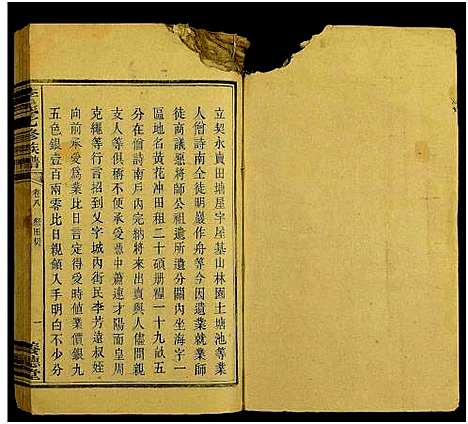 立契永賣田塘屋宇屋基山林園土塘池等業
人僧詩南仝徒明巖作舟等今因遺業就業
徒商議愿將師公祖遺所遺分關內坐海字一
區地名黃花冲田租二十碩册糧一十九畝五
分在僧詩南戶內完納將來出賣與人儘問親
支人等俱稱不便承受憑中蕭遠才陽面皇周
克繩等行言招到父字城內街民李芳遠叔姪
向前承受為業比日言定得受時值業價銀九
五色銀壹百兩零比日親領入手明白不少分
修族譜
卷八
祭田契
一